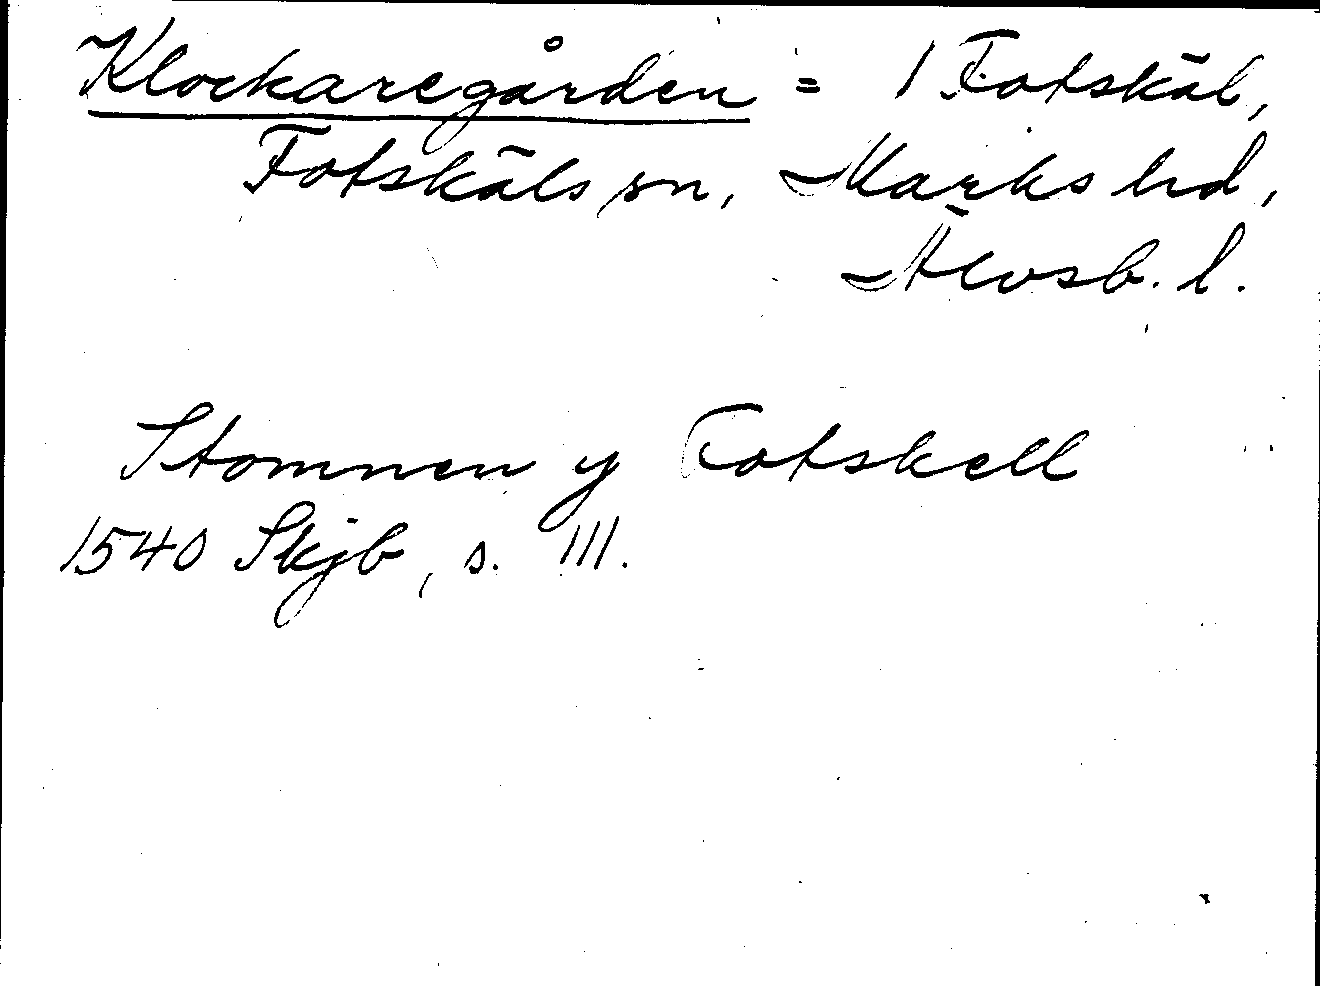 Klockaregården = 1 Fotskäl,
Fotskäls sn, Marks hd,
Älvsb. l.
Stomnen y Fotskell
1540 Skjb, s. 111.